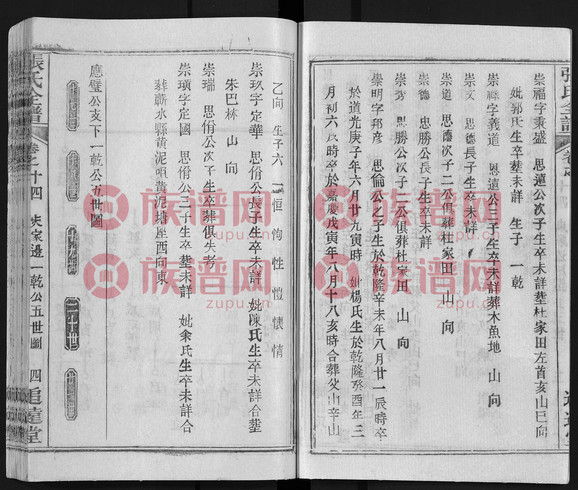 崇福字秉盛 思遠公次子生卒未詳塟杜家田左首亥山巳向
妣郭氏生卒塟未詳 生子 一乾
崇祿字義道 思遠公三子生卒未詳葬木魚地 山 向
崇文 思德長子生卒未詳
崇道 思德次子二公俱葬杜家田 山 向
崇德 思勝公長子生卒未詳
崇秀 思勝公次子三公俱葬杜家田 山 向
崇明字邦彦 思倫公之子生於乾隆辛未年八月廿一辰時卒
於道光庚子年六月廿九寅時 妣楊氏生於乾隆癸酉年三
月初六 時卒於嘉慶戊寅年八月十八亥時合葬 山辛山
乙向 生子六 恒 恂 性 愷 懷 情
崇玖字定華 思佾公長子生卒未詳 妣陳氏生卒未詳合塟
朱巴林 山 向
崇瑞 思佾公次子生卒葬俱失考
崇璜字定國 思佾公三子生卒塟未詳 妣余氏生卒未詳合
葬蘄水縣黃泥咀黃泥墈座西向東
應璧公支下一乾公五世圖
張氏全譜 卷之十四 朱家邊一乾公五世圖 四 追遠堂
張氏全譜
族谱网
zupu.cn